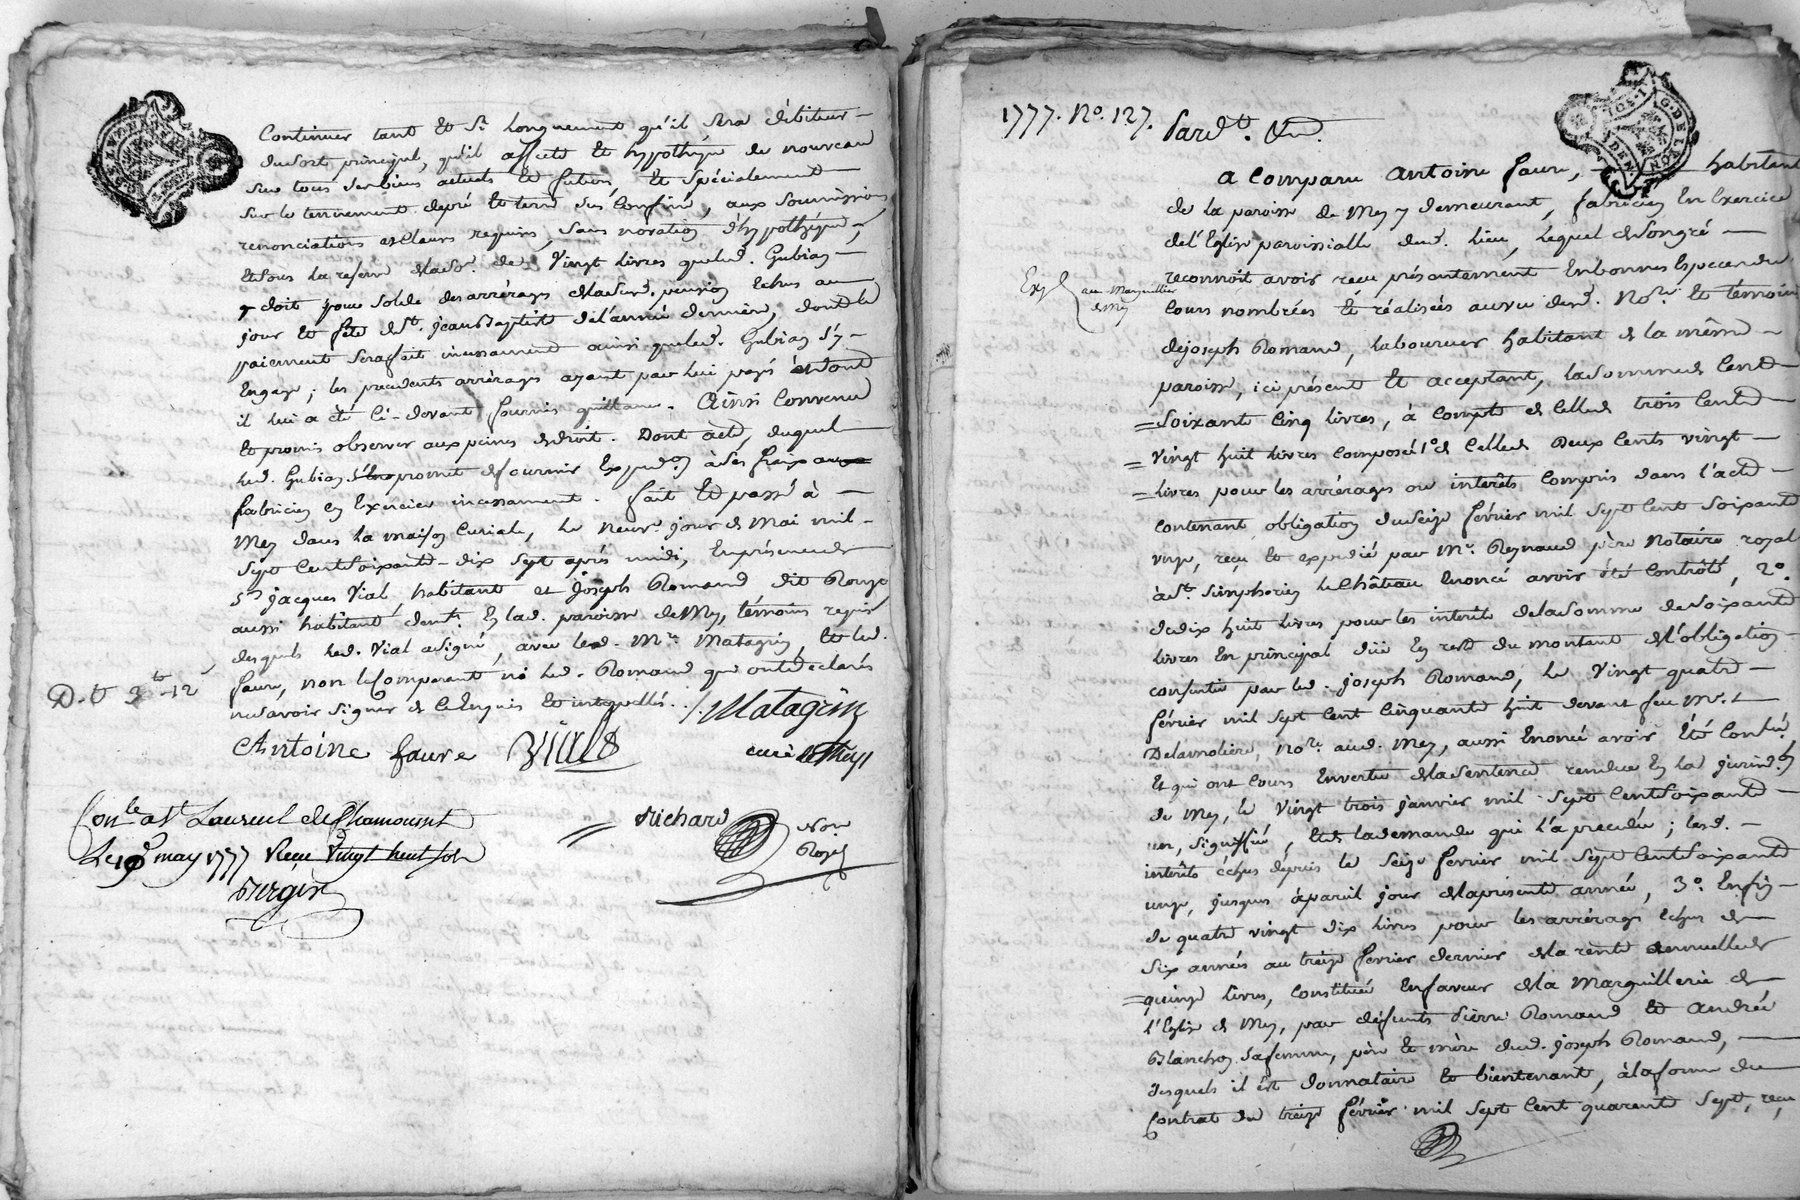 Continuer tant et si longuement qu'il sera débiteur
du sort principal, qu'il affecte et hypothéque de nouveau
sur tous ses biens actuels et futurs et spécialement
sur le tennement depré et terre sus confiné, aux soumissions
renonciations et clauses requises, sans novation d'hypothéque,
et sous la reserve de la so. de vingt livres que led. Gubian
doit pour solde des arrérages de la susd. pension echus au
jour et fête de St. jean Baptiste de l'année derniere, dont le
paiement sera fait incessamment ainsi que led. Gubian s'y
engage; les precedents arrérages ayant par lui payé et dont
il lui a été ci-devant fournis quittance. Ainsi convenu
et promis observer aux peines de droit. Dont acte, duquel
led. Gubian promet de fournir Expedon. à ses fraix aux
fabricien en Exercice incessamment. fait et passé à
Mey dans la maison Curiale, le neuve. jour de Mai mil
sept cent soixante-dix sept après midi, En présence de
Sr. jacques Vial habitant et Joseph Romand dit Rouge
aussi habitant dent. En lad. paroisse de Mey, témoins requis
desquels led. Vial a signé, avec lesd. Mre. Matagrin, et led.
faure, non le Comparant ni led. Romand qui ont déclarés
ne savoir signer de ce Enquis et interpellés.
D. t 3 tt 12
Matagrin
curé de Mey
Antoine faure Vial
Conle. a St Laurent de Chamousset
Le 19 may 1777 Reçu Vingt huit sols
Richard
Nore
Royal
1777. No. 127.
Pardt. &nd.
A Comparu Antoine faure, habitant
de la paroisse de Mey y demeurant, fabricien En Exercice
de l'Eglise paroissialle dud. lieu, lequel de son gré
reconnoit avoir recu présentement En bonnes Especes du
Exp.
au Marguillier
de Mey
Cours nombrées et réalisées au vu desd. Nore. et témoins
de joseph Romand, laboureur habitant de la même
paroisse, ici présent et acceptant, la somme de Cent
soixante cinq livres, à compte de celle de trois cents
vingt huit livres composée 1o. de celle de Deux cents vingt
livres pour les arrérages ou interêts compris dans l'acte
contenant obligation du seize février mil sept cent soixante
unze, reçu et expedié par Mr. Reynaud père Notaire royal
à St. simphorien le Château Enoncé avoir été Contrôlé, 2o.
de dix huit livres pour les interêts de la somme de soixante
livres En principal düe En reste du montant de l'obligation
consentie par led. joseph Romand, le vingt quatre
février mil sept cent cinquante huit devant feu Mre.
Delamoliere, nore. aud. Mey, aussi Enoncé avoir Eté Contlé,
Et qui ont cours En vertu de la sentence rendue En la jurisdon
de Mey, le vingt trois janvier mil sept cent soixante
un, signiffié, et de la demande qui l'a precedée; lesd.
interêts échus depuis le seize février mil sept cent soixante
unze, jusques à pareil jour de la présente année, 3o. Enfin
de quatre vingt dix livres pour les arrérages echus de
six années au treize fevrier dernier de la rente annuelle de
quinze livres, constituée En faveur de la Marguillerie de
l'Eglise de Mey, par défunts Pierre Romand et Andrée
Blanchon sa femme, père et mère dud. joseph Romand,
desquels il est donnataire et bientenant, à la forme du
Contrat du treize février mil sept cent quarente sept, reçu